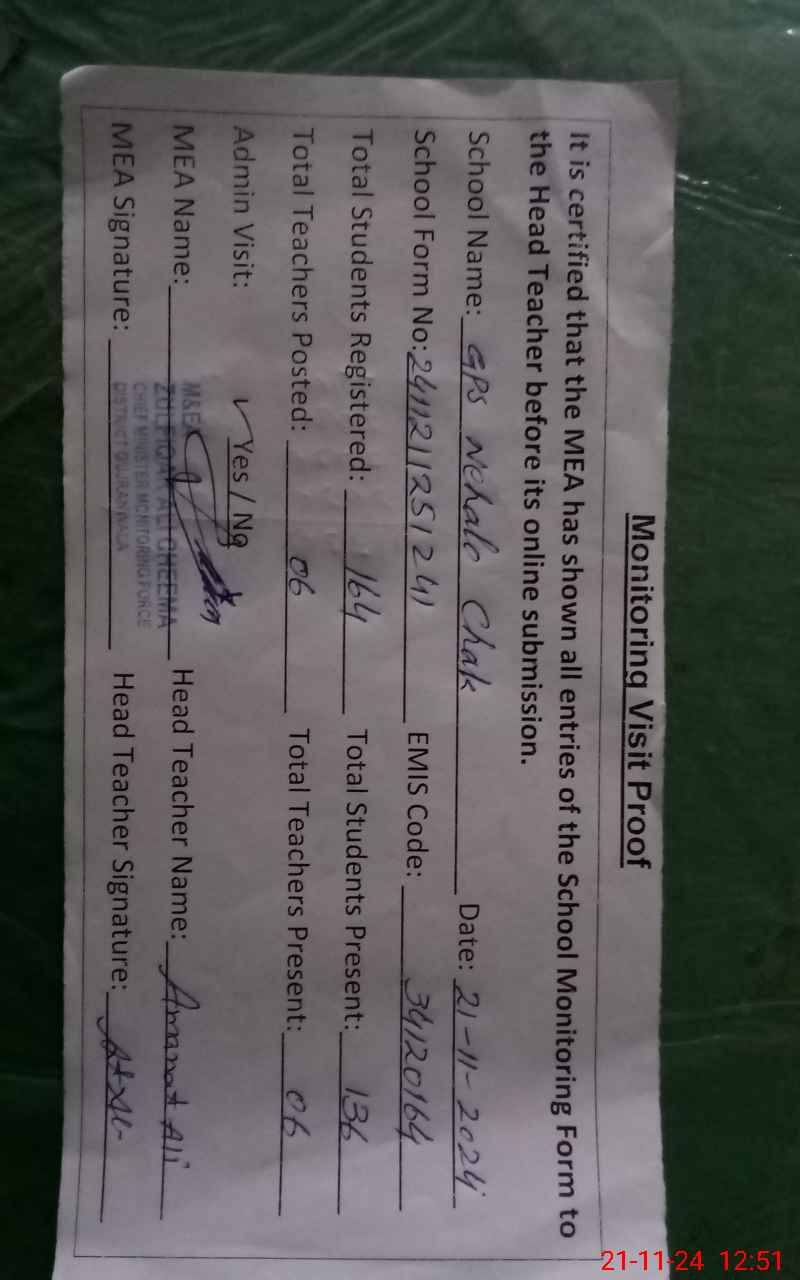 Monitoring Visit Proof
It is certified that the MEA has shown all entries of the School Monitoring Form to
the Head Teacher before its online submission.
School Name: GPS Nehale Chak Date: 21-11-2024
School Form No: 2411211251241 EMIS Code: 34120164
Total Students Registered: 164 Total Students Present: 136
Total Teachers Posted: 06 Total Teachers Present: 06
Admin Visit: ✓Yes / No
MEA Name: Head Teacher Name: Amanat Ali
MEA Signature: Head Teacher Signature:
ZULFIQAR ALI CHEEMA
CHIEF MINISTER MONITORING FORCE
DISTRICT GUJRANWALA
21-11-24 12:51